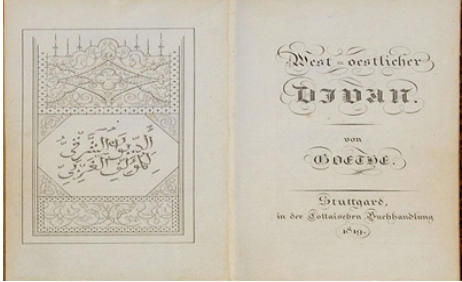 الديوان الشرقي
للمؤلف الغربي
West-oestlicher
DIVAN.
von
GOETHE.
Stuttgard,
in der Cottaischen Buchhandlung
1819.